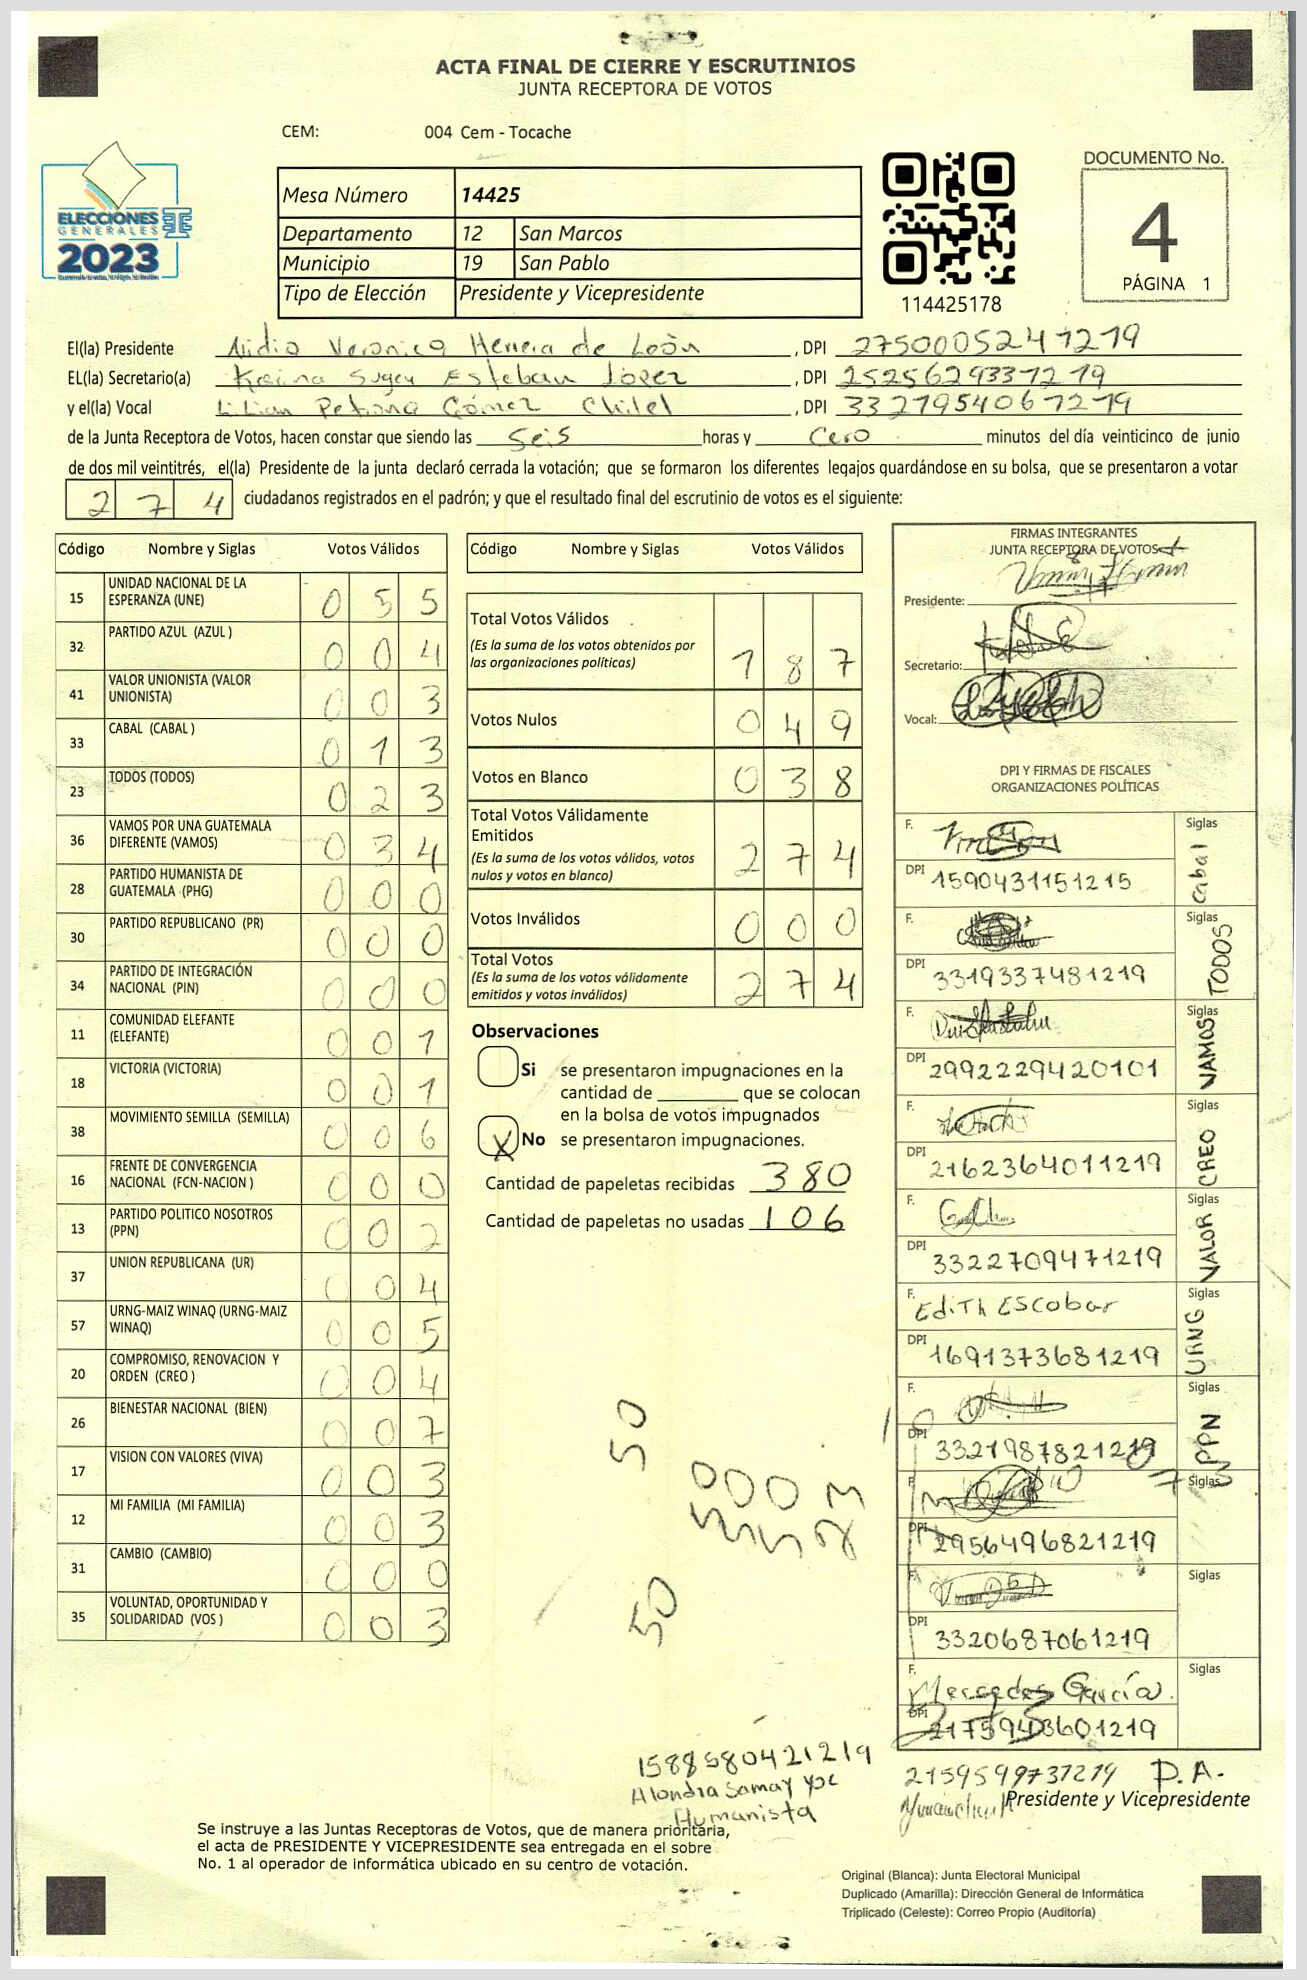 ACTA FINAL DE CIERRE Y ESCRUTINIOS
JUNTA RECEPTORA DE VOTOS
CEM: 004 Cem - Tocache
ELECCIONES
GENERALES
2023
Mesa Número 14425
Departamento 12 San Marcos
Municipio 19 San Pablo
Tipo de Elección Presidente y Vicepresidente
114425178
DOCUMENTO No.
4
PÁGINA 1
El(la) Presidente Nidia Veronica Herrera de León, DPI 2750005241219
EL(la) Secretario(a) Karina Sugey Esteban López, DPI 2525629331219
y el(la) Vocal Lilian Petrona Gómez Chilel, DPI 3327954061219
de la Junta Receptora de Votos, hacen constar que siendo las Seis horas y Cero minutos del día veinticinco de junio
de dos mil veintitrés, el(la) Presidente de la junta declaró cerrada la votación; que se formaron los diferentes legajos guardándose en su bolsa, que se presentaron a votar
274 ciudadanos registrados en el padrón; y que el resultado final del escrutinio de votos es el siguiente:
Código Nombre y Siglas Votos Válidos
15 UNIDAD NACIONAL DE LA ESPERANZA (UNE) 055
32 PARTIDO AZUL (AZUL ) 004
41 VALOR UNIONISTA (VALOR UNIONISTA) 003
33 CABAL (CABAL ) 013
23 TODOS (TODOS) 023
36 VAMOS POR UNA GUATEMALA DIFERENTE (VAMOS) 034
28 PARTIDO HUMANISTA DE GUATEMALA (PHG) 000
30 PARTIDO REPUBLICANO (PR) 000
34 PARTIDO DE INTEGRACIÓN NACIONAL (PIN) 000
11 COMUNIDAD ELEFANTE (ELEFANTE) 001
18 VICTORIA (VICTORIA) 001
38 MOVIMIENTO SEMILLA (SEMILLA) 006
16 FRENTE DE CONVERGENCIA NACIONAL (FCN-NACION ) 000
13 PARTIDO POLITICO NOSOTROS (PPN) 002
37 UNION REPUBLICANA (UR) 004
57 URNG-MAIZ WINAQ (URNG-MAIZ WINAQ) 005
20 COMPROMISO, RENOVACION Y ORDEN (CREO ) 004
26 BIENESTAR NACIONAL (BIEN) 007
17 VISION CON VALORES (VIVA) 003
12 MI FAMILIA (MI FAMILIA) 003
31 CAMBIO (CAMBIO) 000
35 VOLUNTAD, OPORTUNIDAD Y SOLIDARIDAD (VOS ) 003
Código Nombre y Siglas Votos Válidos
Total Votos Válidos
(Es la suma de los votos obtenidos por las organizaciones políticas) 187
Votos Nulos 049
Votos en Blanco 038
Total Votos Válidamente Emitidos
(Es la suma de los votos válidos, votos nulos y votos en blanco) 274
Votos Inválidos 000
Total Votos
(Es la suma de los votos válidamente emitidos y votos inválidos) 274
Observaciones
Si se presentaron impugnaciones en la
cantidad de ________ que se colocan
en la bolsa de votos impugnados
X No se presentaron impugnaciones.
Cantidad de papeletas recibidas 380
Cantidad de papeletas no usadas 106
50
000
50
FIRMAS INTEGRANTES
JUNTA RECEPTORA DE VOTOS
Presidente:
Secretario:
Vocal:
DPI Y FIRMAS DE FISCALES
ORGANIZACIONES POLÍTICAS
F. Siglas Cabal
DPI 1590431151215
F. Siglas TODOS
DPI 3319337481219
F. Siglas VAMOS
DPI 2992229420101
F. Siglas CREO
DPI 2162364011219
F. Siglas VALOR
DPI 3322709471219
F. Edith Escobar Siglas URNG
DPI 1691373681219
F. Siglas PPN
DPI 3321987821219
F. Siglas
DPI 2956496821219
F. Siglas
DPI 3320687061219
F. Mercedes García Siglas
DPI 2175943601219
1588580421219
Alondra Samay
Humanista
2159599731219 P.A.
Presidente y Vicepresidente
Se instruye a las Juntas Receptoras de Votos, que de manera prioritaria,
el acta de PRESIDENTE Y VICEPRESIDENTE sea entregada en el sobre
No. 1 al operador de informática ubicado en su centro de votación.
Original (Blanca): Junta Electoral Municipal
Duplicado (Amarilla): Dirección General de Informática
Triplicado (Celeste): Correo Propio (Auditoría)